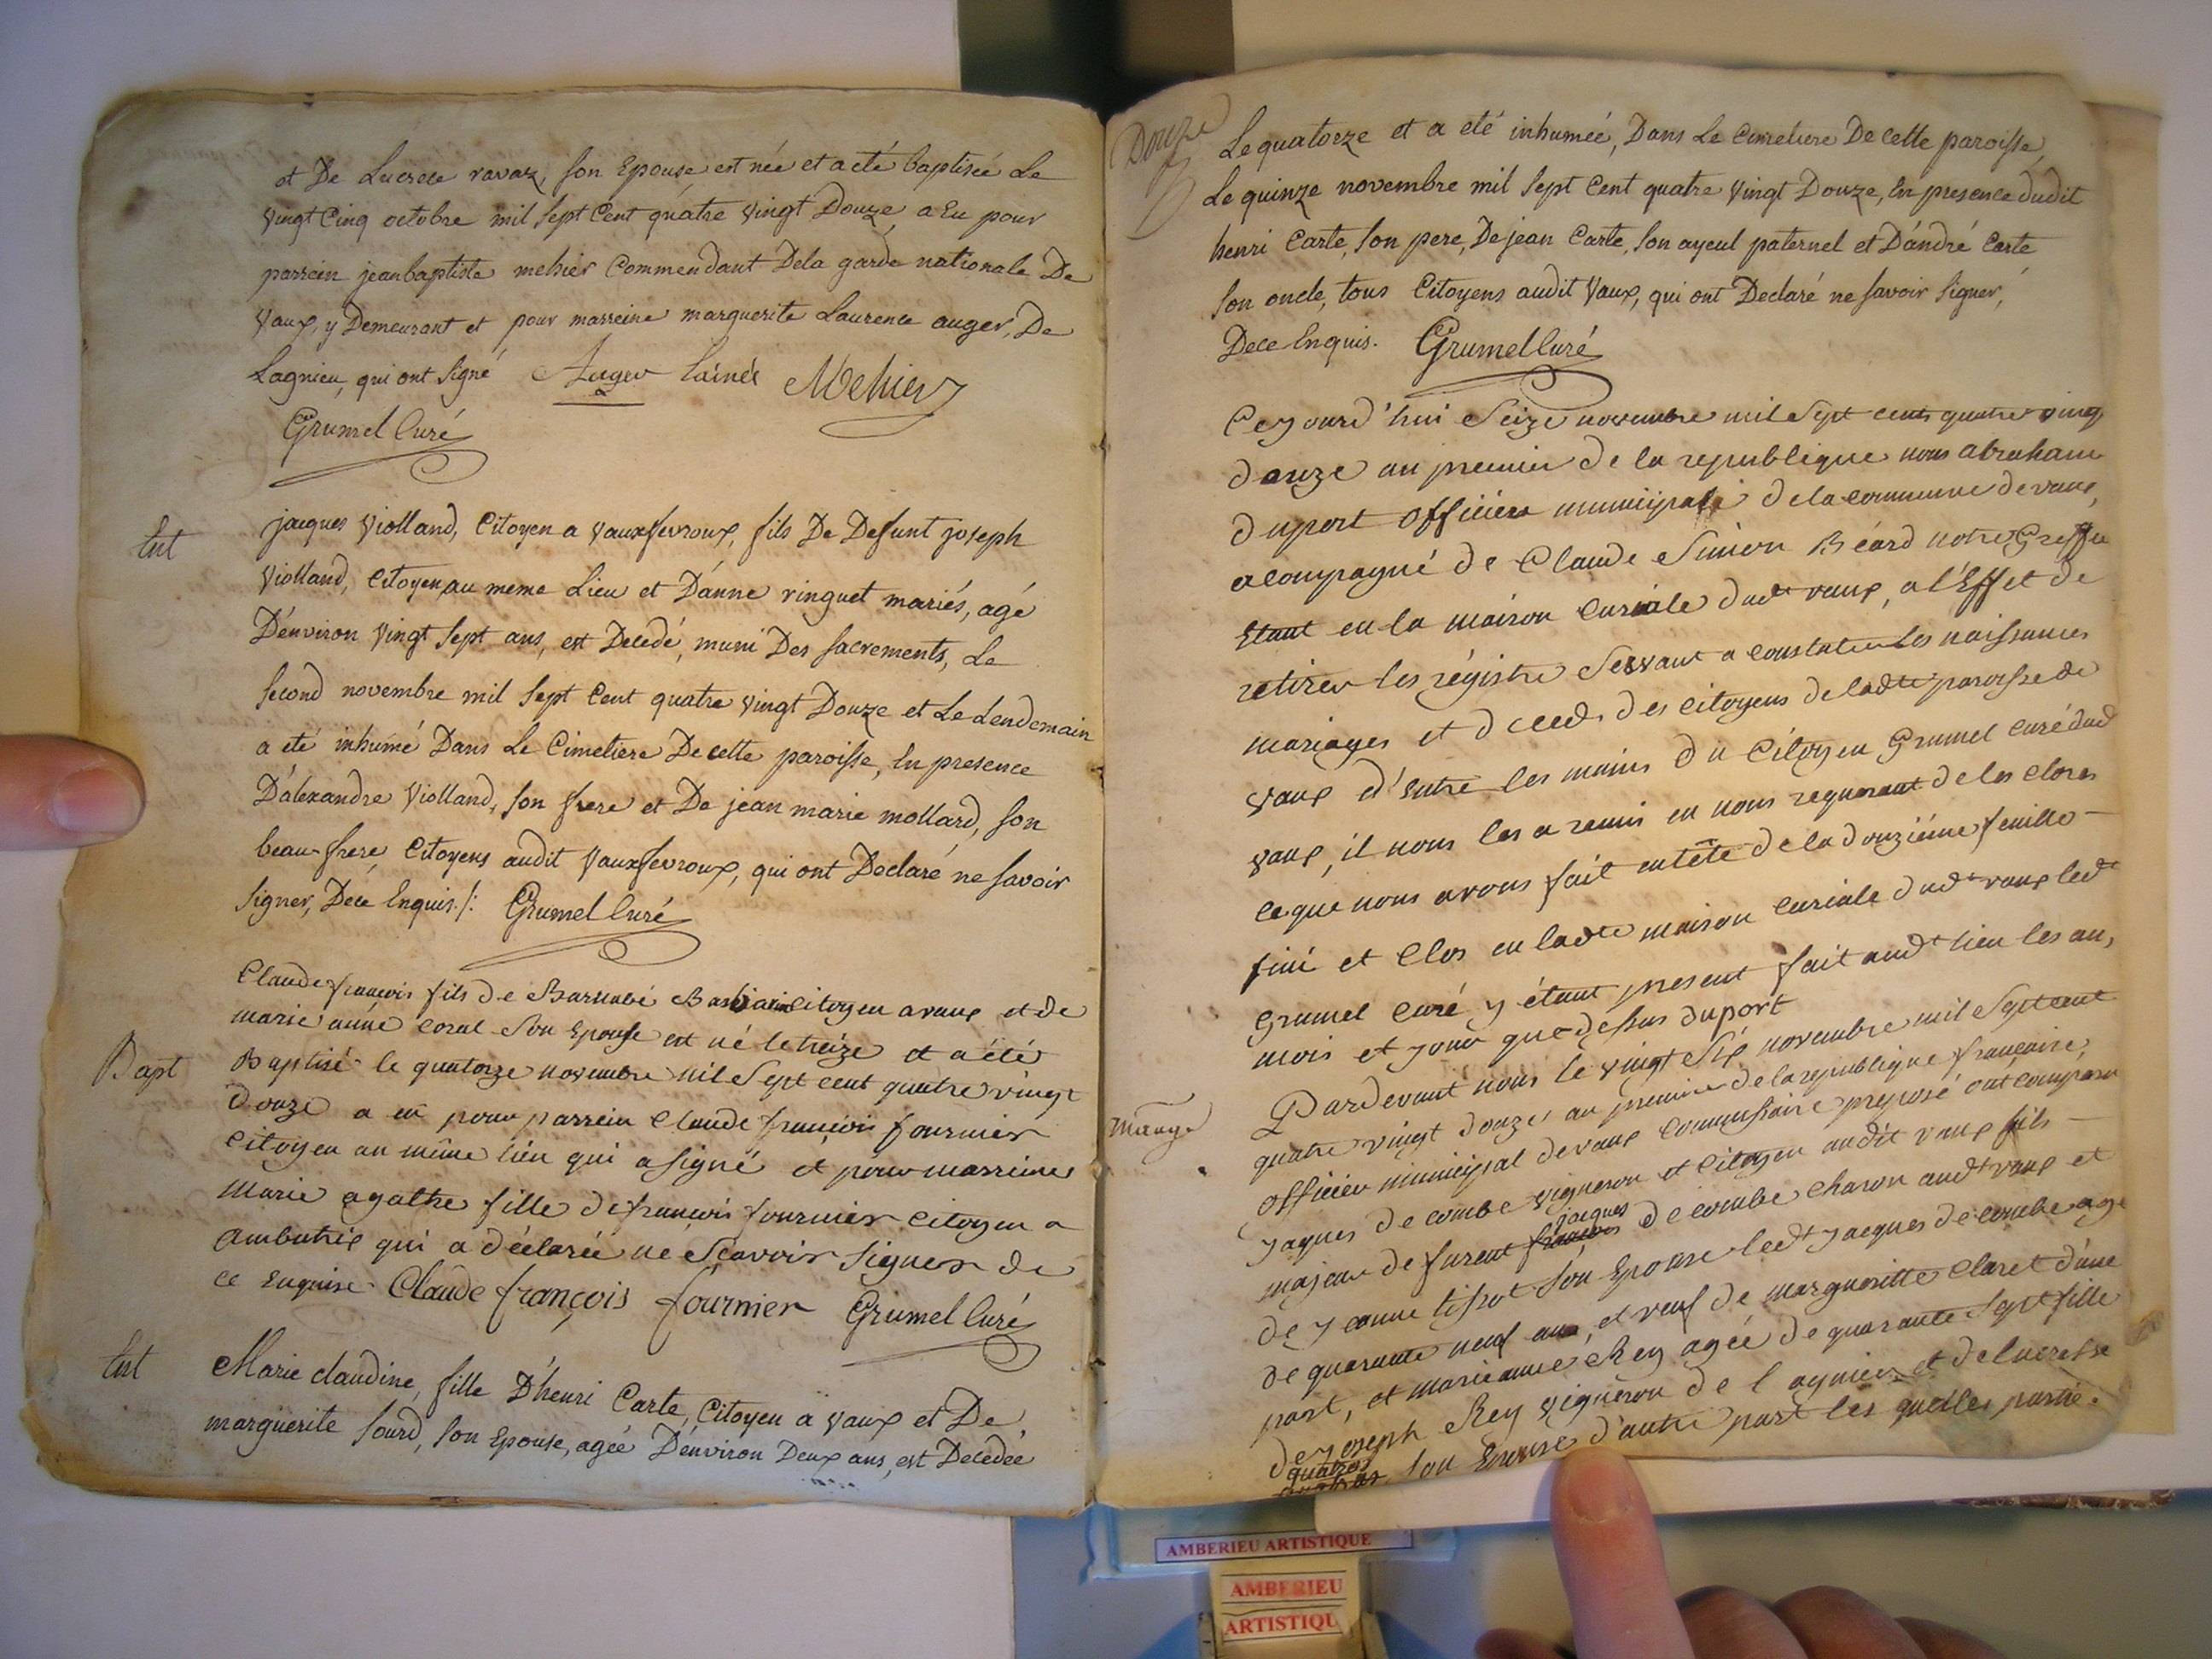 et De Lucrece ravaz, son Epouse est née et a eté baptiseé Le
vingt Cinq octobre mil sept Cent quatre vingt Douze, a Eu pour
parrein jean baptiste mehier Commendant Dela garde nationale De
Vaux, y Demeurant et pour marreine marguerite Laurence auger, De
Lagnieu, qui ont signé Auger lainée Mehier
Grumel Curé
Ent
jacques Violland, Citoyen a Vauxfevroux, fils De Defunt joseph
Violland, Citoyen au meme Lieu et D'anne ringuet mariés, agé
D'environ vingt sept ans, est Decedé, muni Des sacrements, Le
second novembre mil sept Cent quatre vingt Douze et Le Lendemain
a eté inhumé Dans Le Cimetiere De cette paroisse, En presence
D'alexandre Violland, son frere et De jean marie mollard, son
beau-frere, Citoyens audit Vauxfevroux, qui ont Declaré ne savoir
signer, De ce Enquis./: Grumel Curé
Bapt
Claude françois fils de Barnabé citoyen a vaux et de
marie anne coral son Epouse est né le treize et a été
Baptisé le quatorze novembre mil Sept cent quatre vingt
douze a eu pour parrein Claude françois fournier
citoyen au même lieu qui a signé et pour marreine
Marie agathe fille de françois fournier citoyen a
Ambutrix qui a déclarée ne Scavoir signer de
ce Enquise Claude françois fournier Grumel Curé
Ent
Marie claudine, fille D'henri Carte, Citoyen a Vaux et De
marguerite sourd, son Epouse, ageé D'environ Deux ans, est Decedeé
Douze
Le quatorze et a eté inhumeé, Dans Le Cimetiere De cette paroisse,
Le quinze novembre mil sept Cent quatre vingt Douze, En presence dudit
henri Carte, son pere, De jean Carte, son ayeul paternel et D'andré Carte
son oncle, tous Citoyens audit Vaux, qui ont Declaré ne savoir signer,
De ce Enquis. Grumel Curé
Cejourd'hui Seize novembre mil Sept cents quatre vingt
douze an premier de la republique nous abraham
duport officier municipal de la commune de vaux,
acompagné de Claude Simion Béard notre Greffie
Etant en la maison curiale dudt vaux, a l'Effet de
retirer les régistre Servant a constater les naissances
mariages et deceds des citoyens de ladte paroisse de
vaux d'Entre les mains du Citoyen Grumel curé dud
vaux, il nous les a remis en nous requerant de les clores
ce que nous avons fait entête de la douzième feuille
finie et Clos en ladte maison curiale dudt vaux ledt
Grumel curé y étant present fait audt lieu les an,
mois et jour que dessus duport
mariage
Pardevant nous le vingt Six novembre mil Sept cent
quatre vingt douze, an premier de la republique françaire,
officier municipal de vaux commissaire preposé ont comparu
Jaques de combe vigneron et Citoyen audit vaux fils
majeur de furent françois jacques de combe charon audt vaux et
de jeanne tissot son Epouse ledt Jacques de combe age
de quarante neuf ans, et veuf de margueritte Claret d'une
part, et marieanne Rey agée de quarante Sept fille
de Joseph Rey vigneron de l agnieu et de lucresse
quatros son Epouse d'autre part les quelles partie.